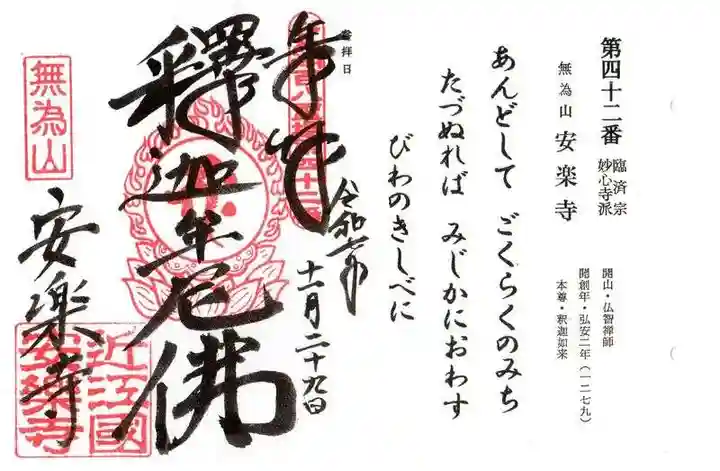 第四十二番
臨済宗
妙心寺派
無為山 安楽寺
開山・仏智禅師
開創年・弘安二年(一二七九)
本尊・釈迦如来
あんどして ごくらくのみち
たづぬれば みじかにおわす
びわのきしべに
参拝日
奉拝
令和六年
十一月二十九日
釋迦牟尼佛
無為山
安楽寺
近江國
安樂寺